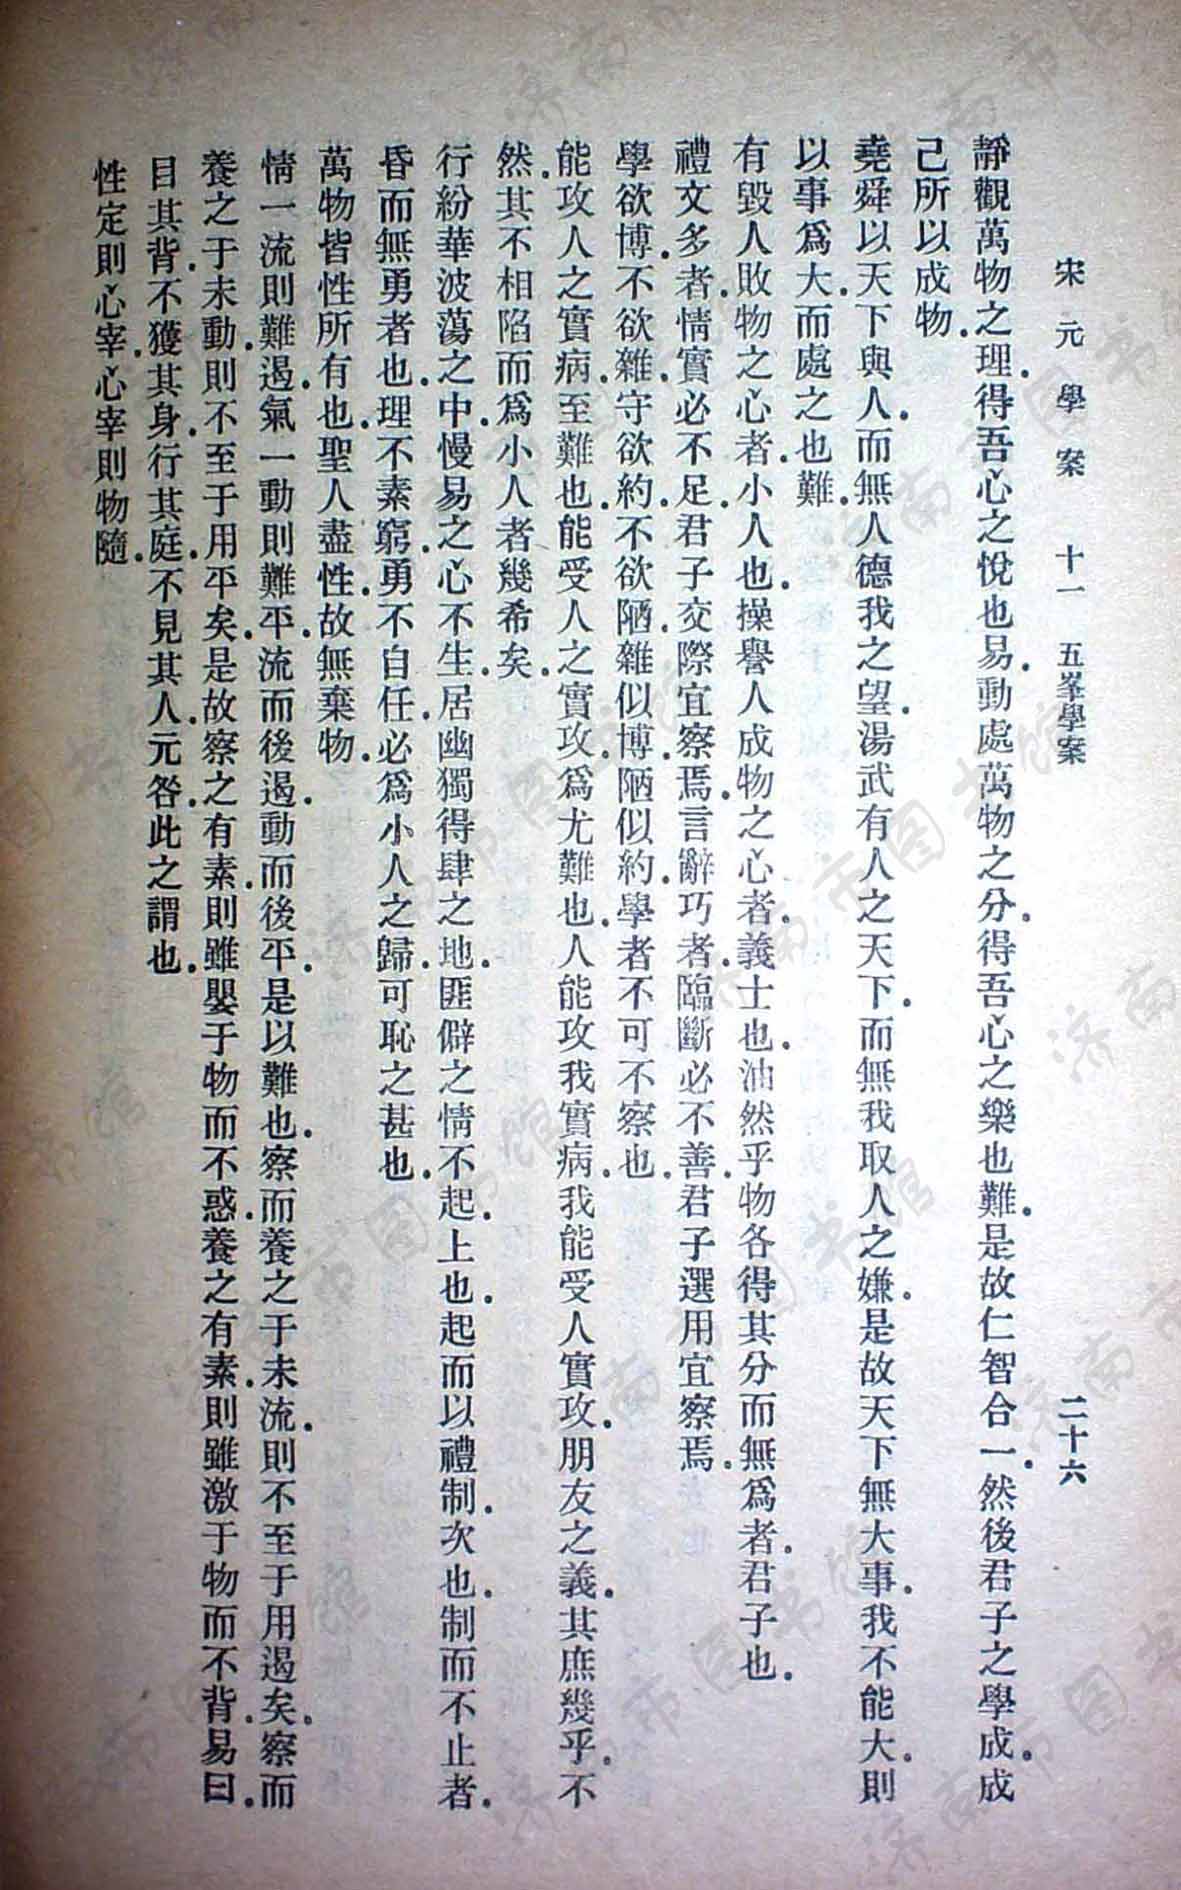 宋元學案 十一 五峯學案 二十六
靜觀萬物之理.得吾心之悅也易.動處萬物之分.得吾心之樂也難.是故仁智合一.然後君子之學成.成
己所以成物.
堯舜以天下與人.而無人德我之望.湯武有人之天下.而無我取人之嫌.是故天下無大事.我不能大.則
以事爲大.而處之也難.
有毀人敗物之心者.小人也.操譽人成物之心者.義士也.油然乎物各得其分而無爲者.君子也.
禮文多者.情實必不足.君子交際宜察焉.言辭巧者.臨斷必不善.君子選用宜察焉.
學欲博.不欲雜.守欲約.不欲陋.雜似博.陋似約.學者不可不察也.
能攻人之實病.至難也.能受人之實攻.爲尤難也.人能攻我實病.我能受人實攻.朋友之義.其庶幾乎.不
然.其不相陷而爲小人者幾希矣.
行紛華波蕩之中.慢易之心不生.居幽獨得肆之地.匪僻之情不起.上也.起而以禮制.次也.制而不止者.
昏而無勇者也.理不素窮.勇不自任.必爲小人之歸.可恥之甚也.
萬物皆性所有也.聖人盡性.故無棄物.
情一流則難遏.氣一動則難平.流而後遏.動而後平.是以難也.察而養之于未流.則不至于用遏矣.察而
養之于未動.則不至于用平矣.是故察之有素.則雖嬰于物而不惑.養之有素.則雖激于物而不背.易曰.
目其背.不獲其身.行其庭.不見其人.元咎.此之謂也.
性定則心宰.心宰則物隨.
济南市图书馆